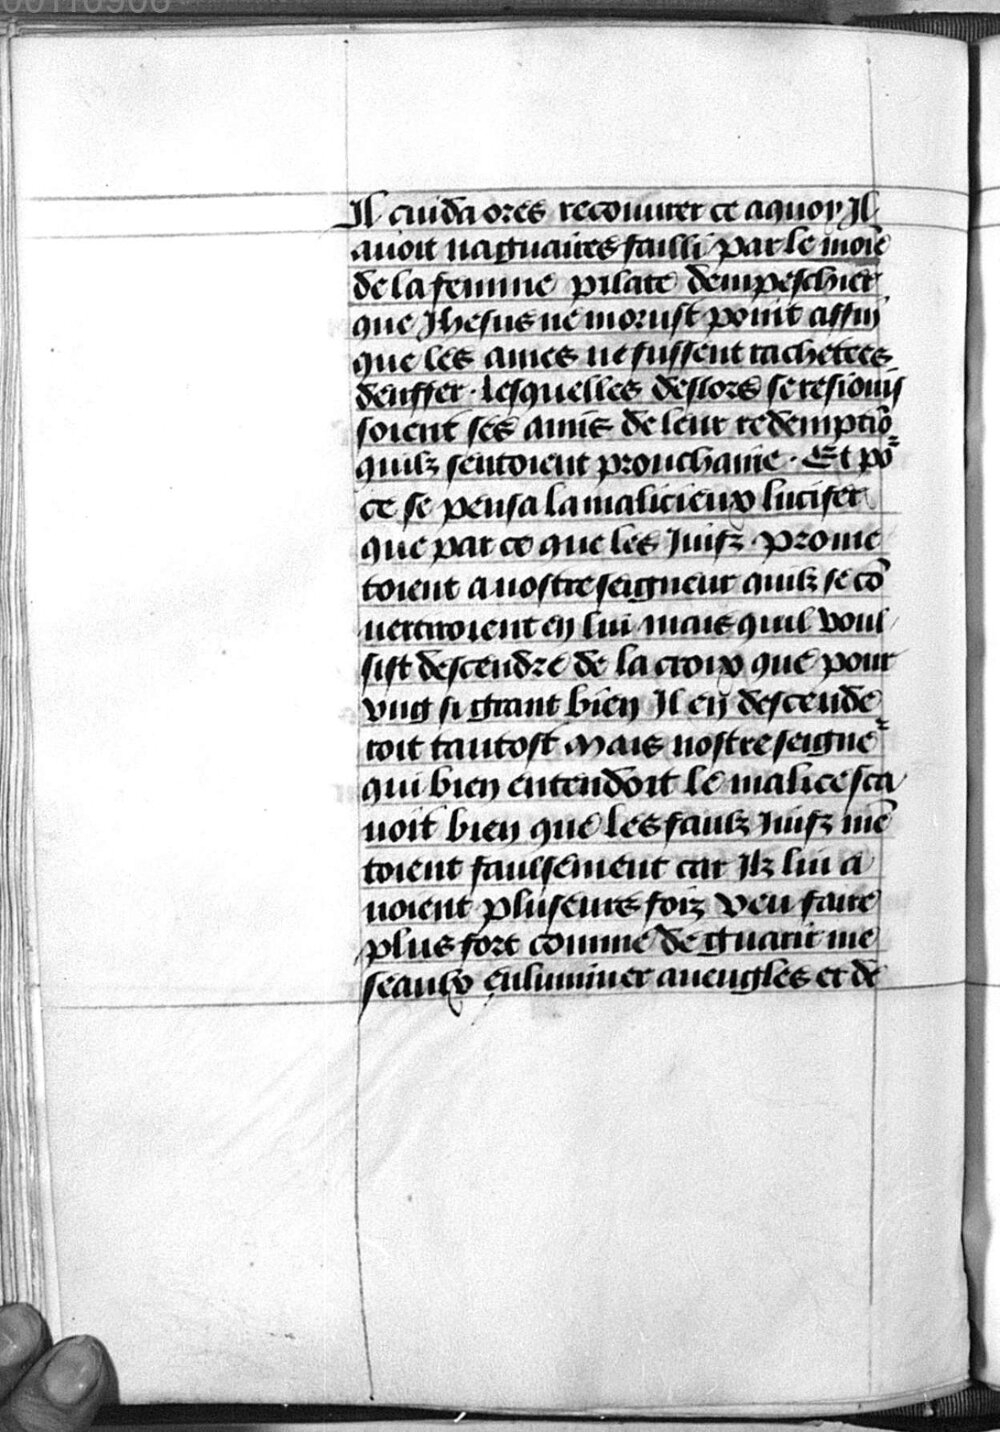 00110908
Il cuida ores recouurer ce a quoy Il
auoit naguaires failli par le moiē
de la femme pilate dempeschier
que Ihesus ne morust point affin
que les ames ne fussent rachetees
denffer · lesquelles deslors se resiouis
soient ses amis de leur redemptiō
quilz sentoient prouchaine · Et po᷑
ce se pensa la malicieux lucifer
que par ce que les Iuifz · prome
toient a nostre seigneur quilz se cō
uertiroient en lui mais quil voul
sist descendre de la croix que pour
vng si grant bien Il en descende
roit tantost Mais nostre seigne᷑
qui bien entendoit le malice sca
uoit bien que les faulz Iuifz mē
toient faulsement car Ilz lui a
uoient pluseurs foiz veu faire
plus fort comme de guarir me
seaulx enluminer aueugles et de